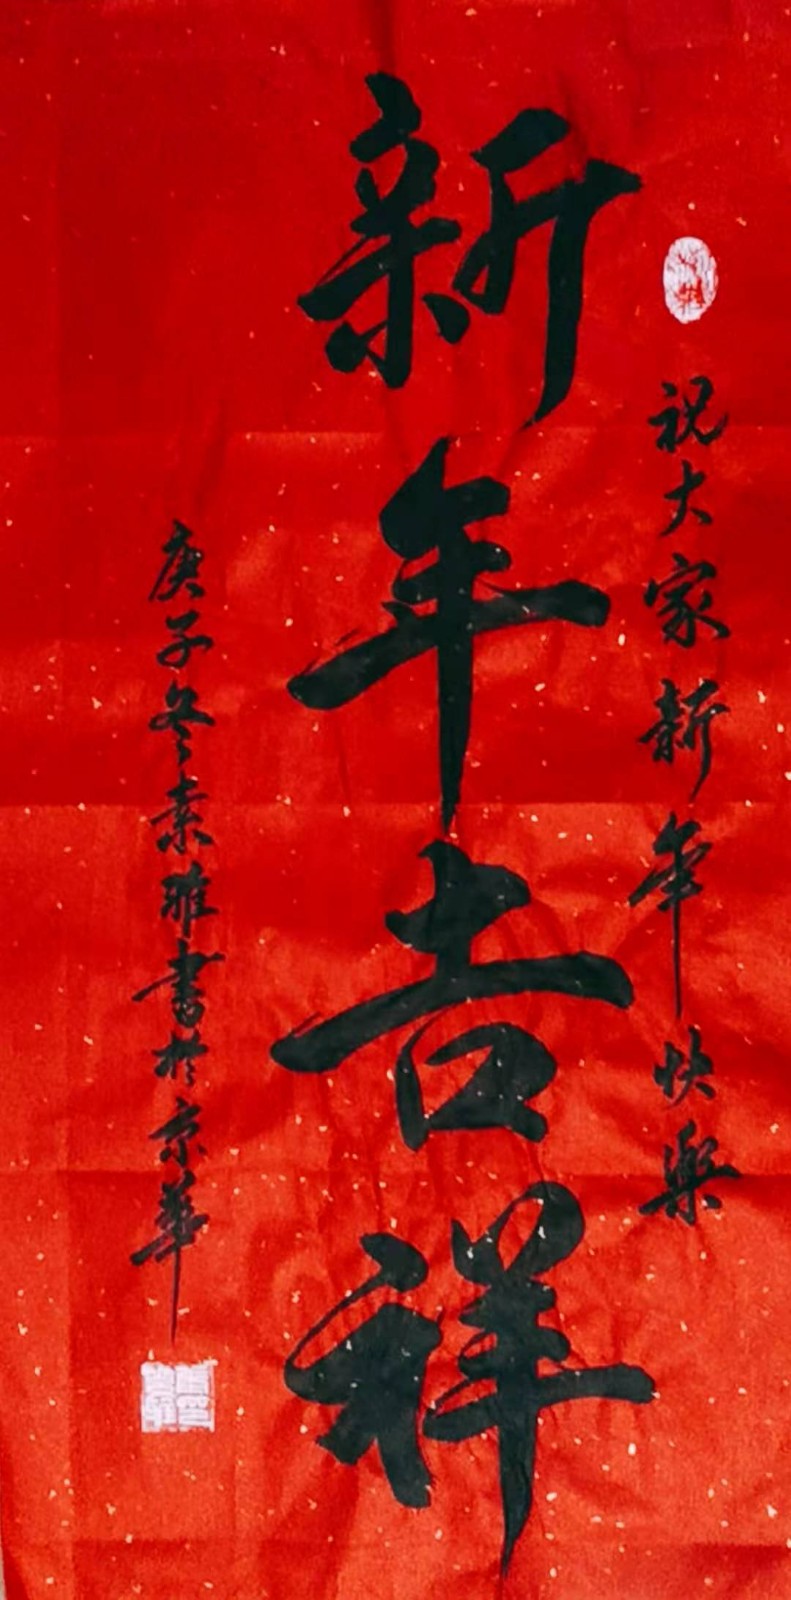 祝大家新年快樂
新年吉祥
庚子冬素雅書於京華